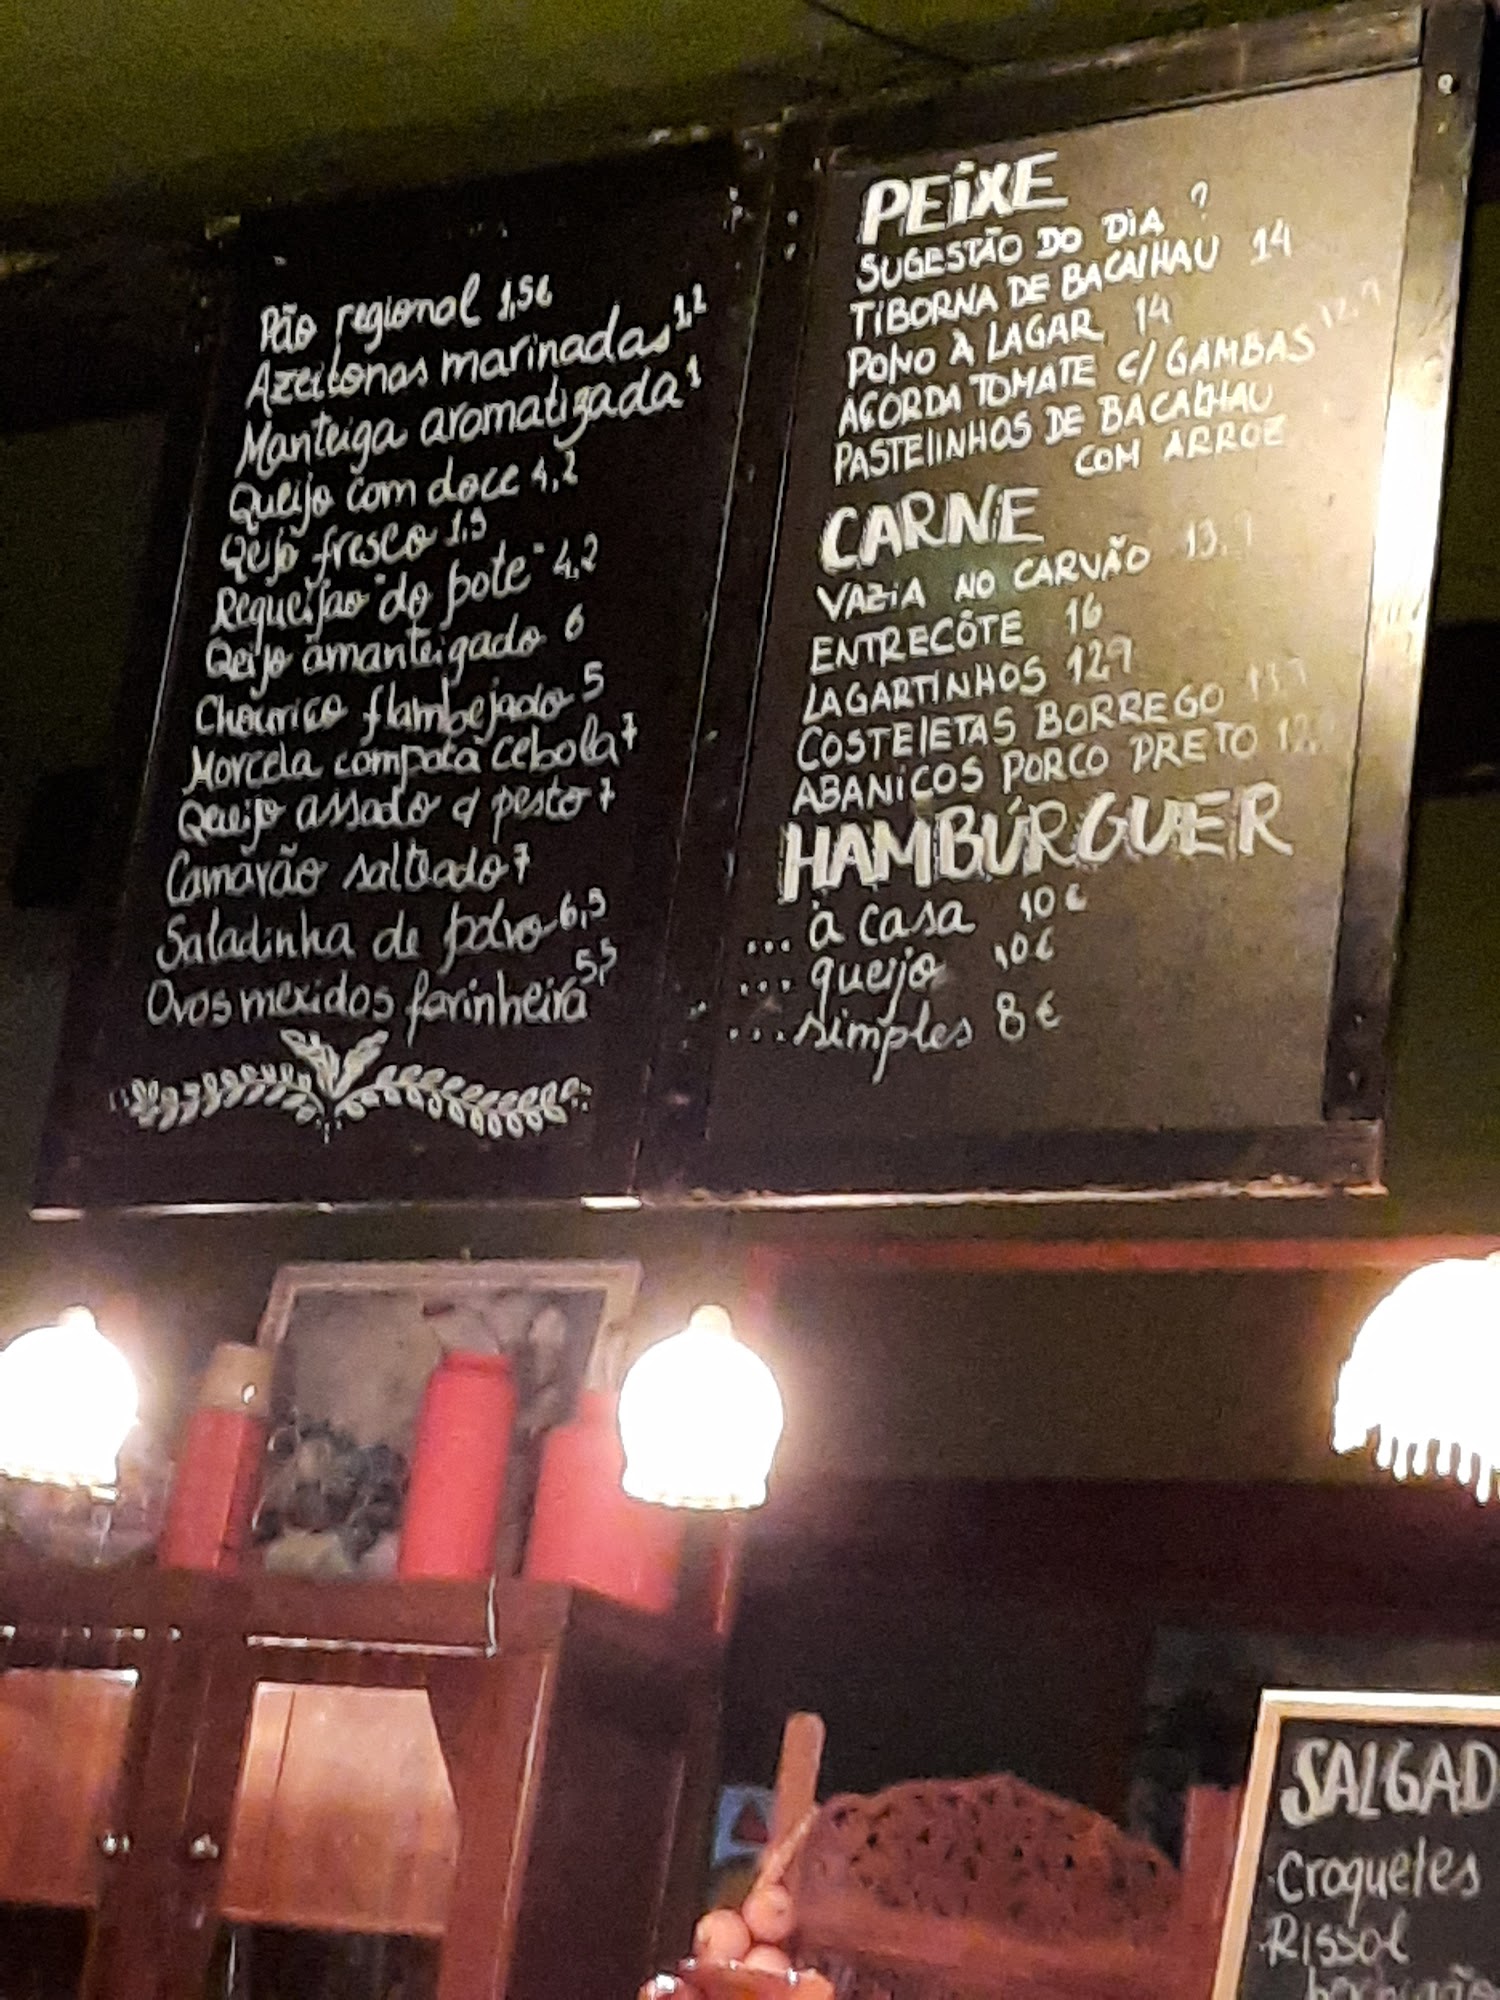 Pão regional 1,5€
Azeitonas marinadas 1,2
Manteiga aromatizada 1
Queijo com doce 4,2
Qeijo fresco 1,5
Requeijao do pote 4,2
Qeijo amanteigado 6
Chouriço flambejado 5
Morcela compota cebola 7
Queijo assado d pesto 7
Camarão salteado 7
Saladinha de polvo 6,5
Ovos mexidos farinheira 5,5
PEiXE
SUGESTÃO DO DiA ?
TiBORNA DE BACAlHAU 14
POlVO À LAGAR 14
AÇORDA TOMATE C/ GAMBAS 12,9
PASTElINHOS DE BACALHAU
COM ARROZ
CARNE
VAZiA NO CARVÃO 13,9
ENTRECÔTE 16
LAGARTINHOS 12,9
COSTElETAS BORREGO 13,9
ABANiCOS PORCO PRETO
HAMBÚRGUER
... à casa 10€
... queijo 10€
... simples 8€
SALGAD
Croquetes
Rissol